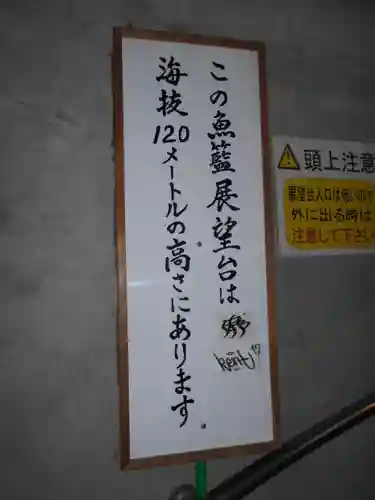 この魚籃展望台は
海抜120メートルの高さにあります。
kent
頭上注意
展望台入口は低いので
外に出る時は
注意して下さい